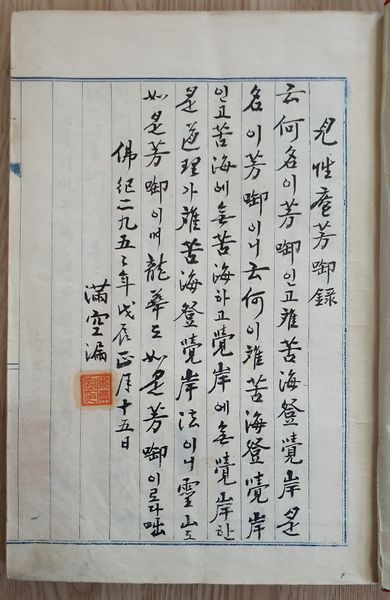 見性庵芳啣錄
云何名이芳啣인고離苦海登覺岸是
名이芳啣이니云何이離苦海登覺岸
인고苦海에無苦海하고覺岸에無覺岸한
是道理가離苦海登覺岸法이니靈山도
如是芳啣이며龍華도如是芳啣이로다咄
佛紀二九五五年戊辰正月十五日
滿空漏